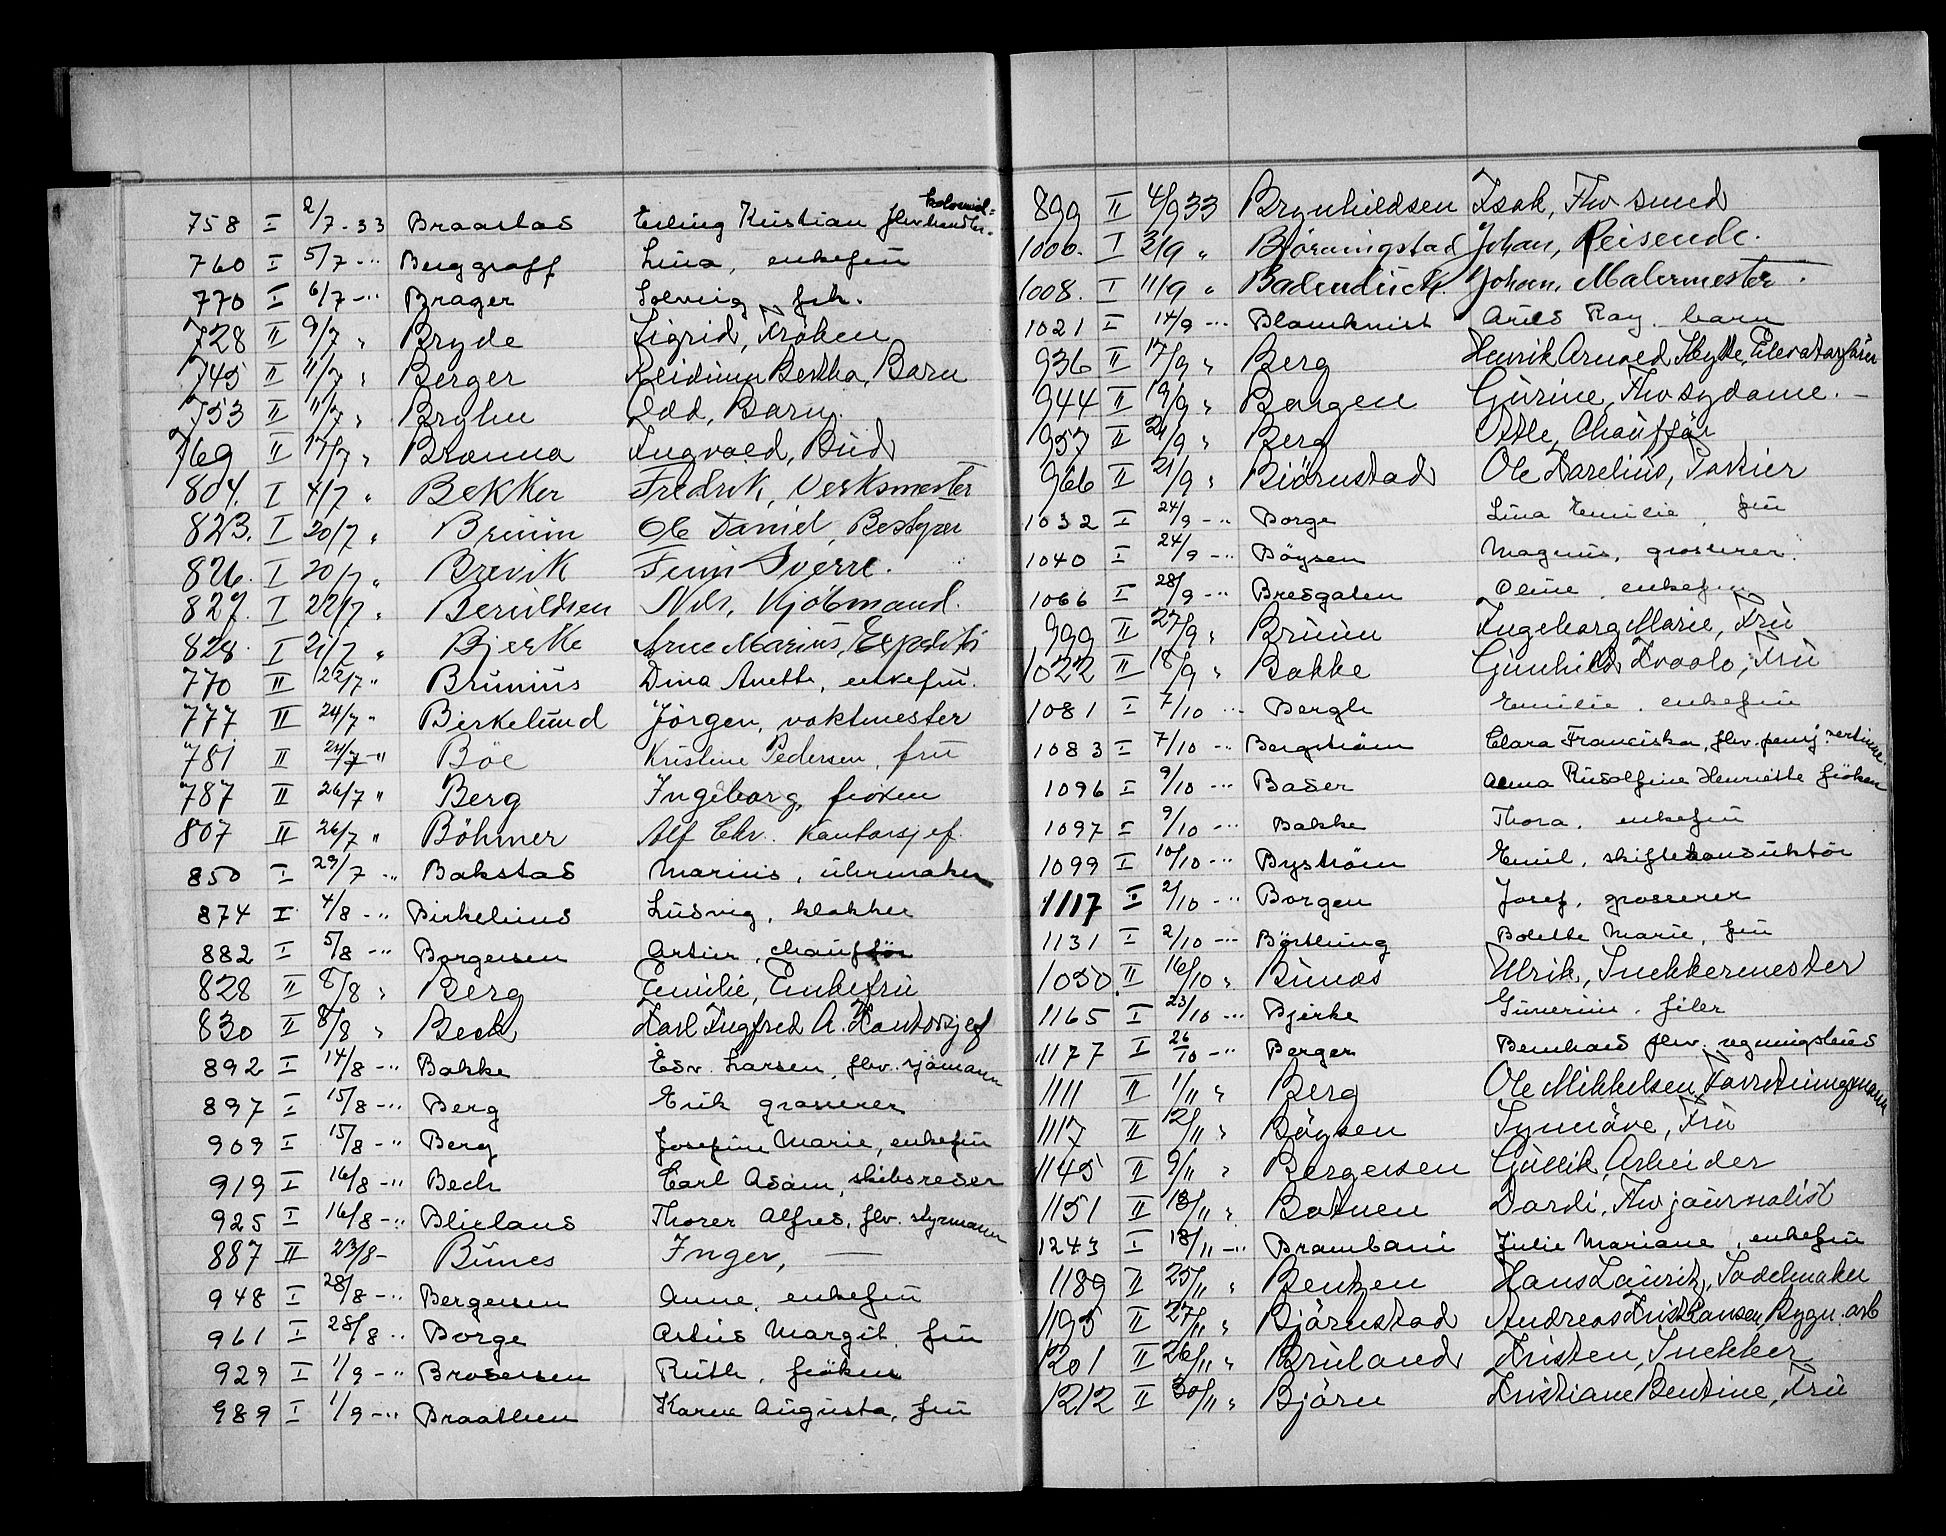 758 I 2/7-33 Braastad Erling Kristian fhv. kolonial=handler.
760 I 5/7 -"- Berggraff Lina, enkefru
770 I 6/7 -"- Brager Solveig frk.
728 II 9/7 " Bryde Sigrid, Frøken
745 II 11/7 " Berger Reidunn Bertha, Barn
753 II 11/7 " Bryhn Odd, Barn.
769 II 17/7 " Brænna Ingvald, Bud
804. I 4/7 " Bekker Fredrik, Verksmester
823. I 20/7 " Bruun Ole Daniel, Bestyrer
826. I 20/7 " Brevik Finn Sverre.
827. I 22/7 " Beruldsen Nils, Kjøbmand.
828. I 21/7 " Bjerke Arne Marius, Expeditør
770 II 22/7 " Brunius Dina Anette, enkefru.
777 II 24/7 " Birkelund Jörgen, vaktmester
781 II 24/7 -" Böe Kristine Pedersen, fru
787 II 26/7 " Berg Ingeborg, frøken
807 II 26/7 " Böhmer Alf Chr. Kontorsjef.
850 I 29/7 -"- Bakstad Marius, uhrmaker
874 I 4/8 -"- Birkelund Ludvig, klokker
882 I 5/8 -"- Borgersen Artur, chauffør
828 II 8/8 " Berg Emilie, Enkefru
830 II 8/8 " Beck Karl Ingfred A. Kontorsjef
892 I 14/8 -"- Bakke Edv. Larsen, fhv. sjömann
897 I 15/8 -"- Berg Erik grosserer
909 I 15/8 -"- Berg Josefine Marie, enkefru
919 I 16/8 -"- Bech Carl Adam, skibsreder
925 I 16/8 -"- Blieland Thorer Alfred, fhv. styrmann
887 II 23/8- Bunes Inger, —
948 I 28/8 -"- Bergersen Anne, enkefru
961 I 28/8 -"- Borge Astrid Margit, fru
929 I 1/9 -"- Brodersen Ruth, frøken
989 I 1/9 -"- Braathen Karen Augusta, fru
899 II 4/9 33 Brynhildsen Isak, Fhv smed
1000. I 3/9 " Bjørningstad Johan, Reisende.
1008. I 11/9 " Badendück. Johan, Malermester.
1021 I 14/9 -"- Blomkvist Ray, barn
936 II 17/9 " Berg Henrik Arnold Skytte, Elevatorfører
944 II 19/9 " Borgen Gurine, Fhv sydame. -
957 II 21/9 " Berg Chauffør
966 II 21/9 " Bjørnstad Ole Karelius, Portier
1032 I 24/9 -"- Borge Lina Emilie, fru
1040 I 24/9 -"- Böysen Magnus, grosserer.
1066 I 28/9 -"- Bredgaten Oline, enkefru
999 II 27/9 " Bruun Ingeborg Marie, Fru
1022 II 18/9 " Bakke Gunhild Fru
1081 I 7/10 -"- Bergh Emilie, enkefru
1083 I 7/10 -"- Bergström Clara Franciska, fhv.
1096 I 9/10 -"- Baser Anna Rudolfine Henriette frøken
1097 I 9/10 -"- Bakke Thora, enkefru
1099 I 10/10 -"- Byström Emil, skiftekonduktør
1117 I 2/10 -"- Borgen Josef, grosserer
1131 I 2/10 -"- Börthung Bolette Marie, fru
1050. II 16/10 " Bunæs Ulrik, Snekkermester
1165 I 23/10 -"- Bjerke filer
1177 I 26/10 -"- Berger Bernhard fhv. regningsbud
1111 II 1/11 " Berg Ole Mikkelsen, Forretningsmann
1117 II 2/11 " Böysen Synnöve, Fru
1145 II 9/11 " Bergersen Gullik, Arbeider
1151 II 13/11 " Botnen Dardi, Fhv journalist
1243 I 18/11 -"- Brambani Julie Mariane, enkefru
1189 II 25/11 " Bentzen Hans Lauritz, Sadelmaker
1195 II 27/11 " Bjørnstad Andreas Kristiansen, Bygn. arb
1201 II 26/11 " Bruland Kristen, Snekker
1212 II 30/11 " Bjørn Kristiane Bentine, Fru